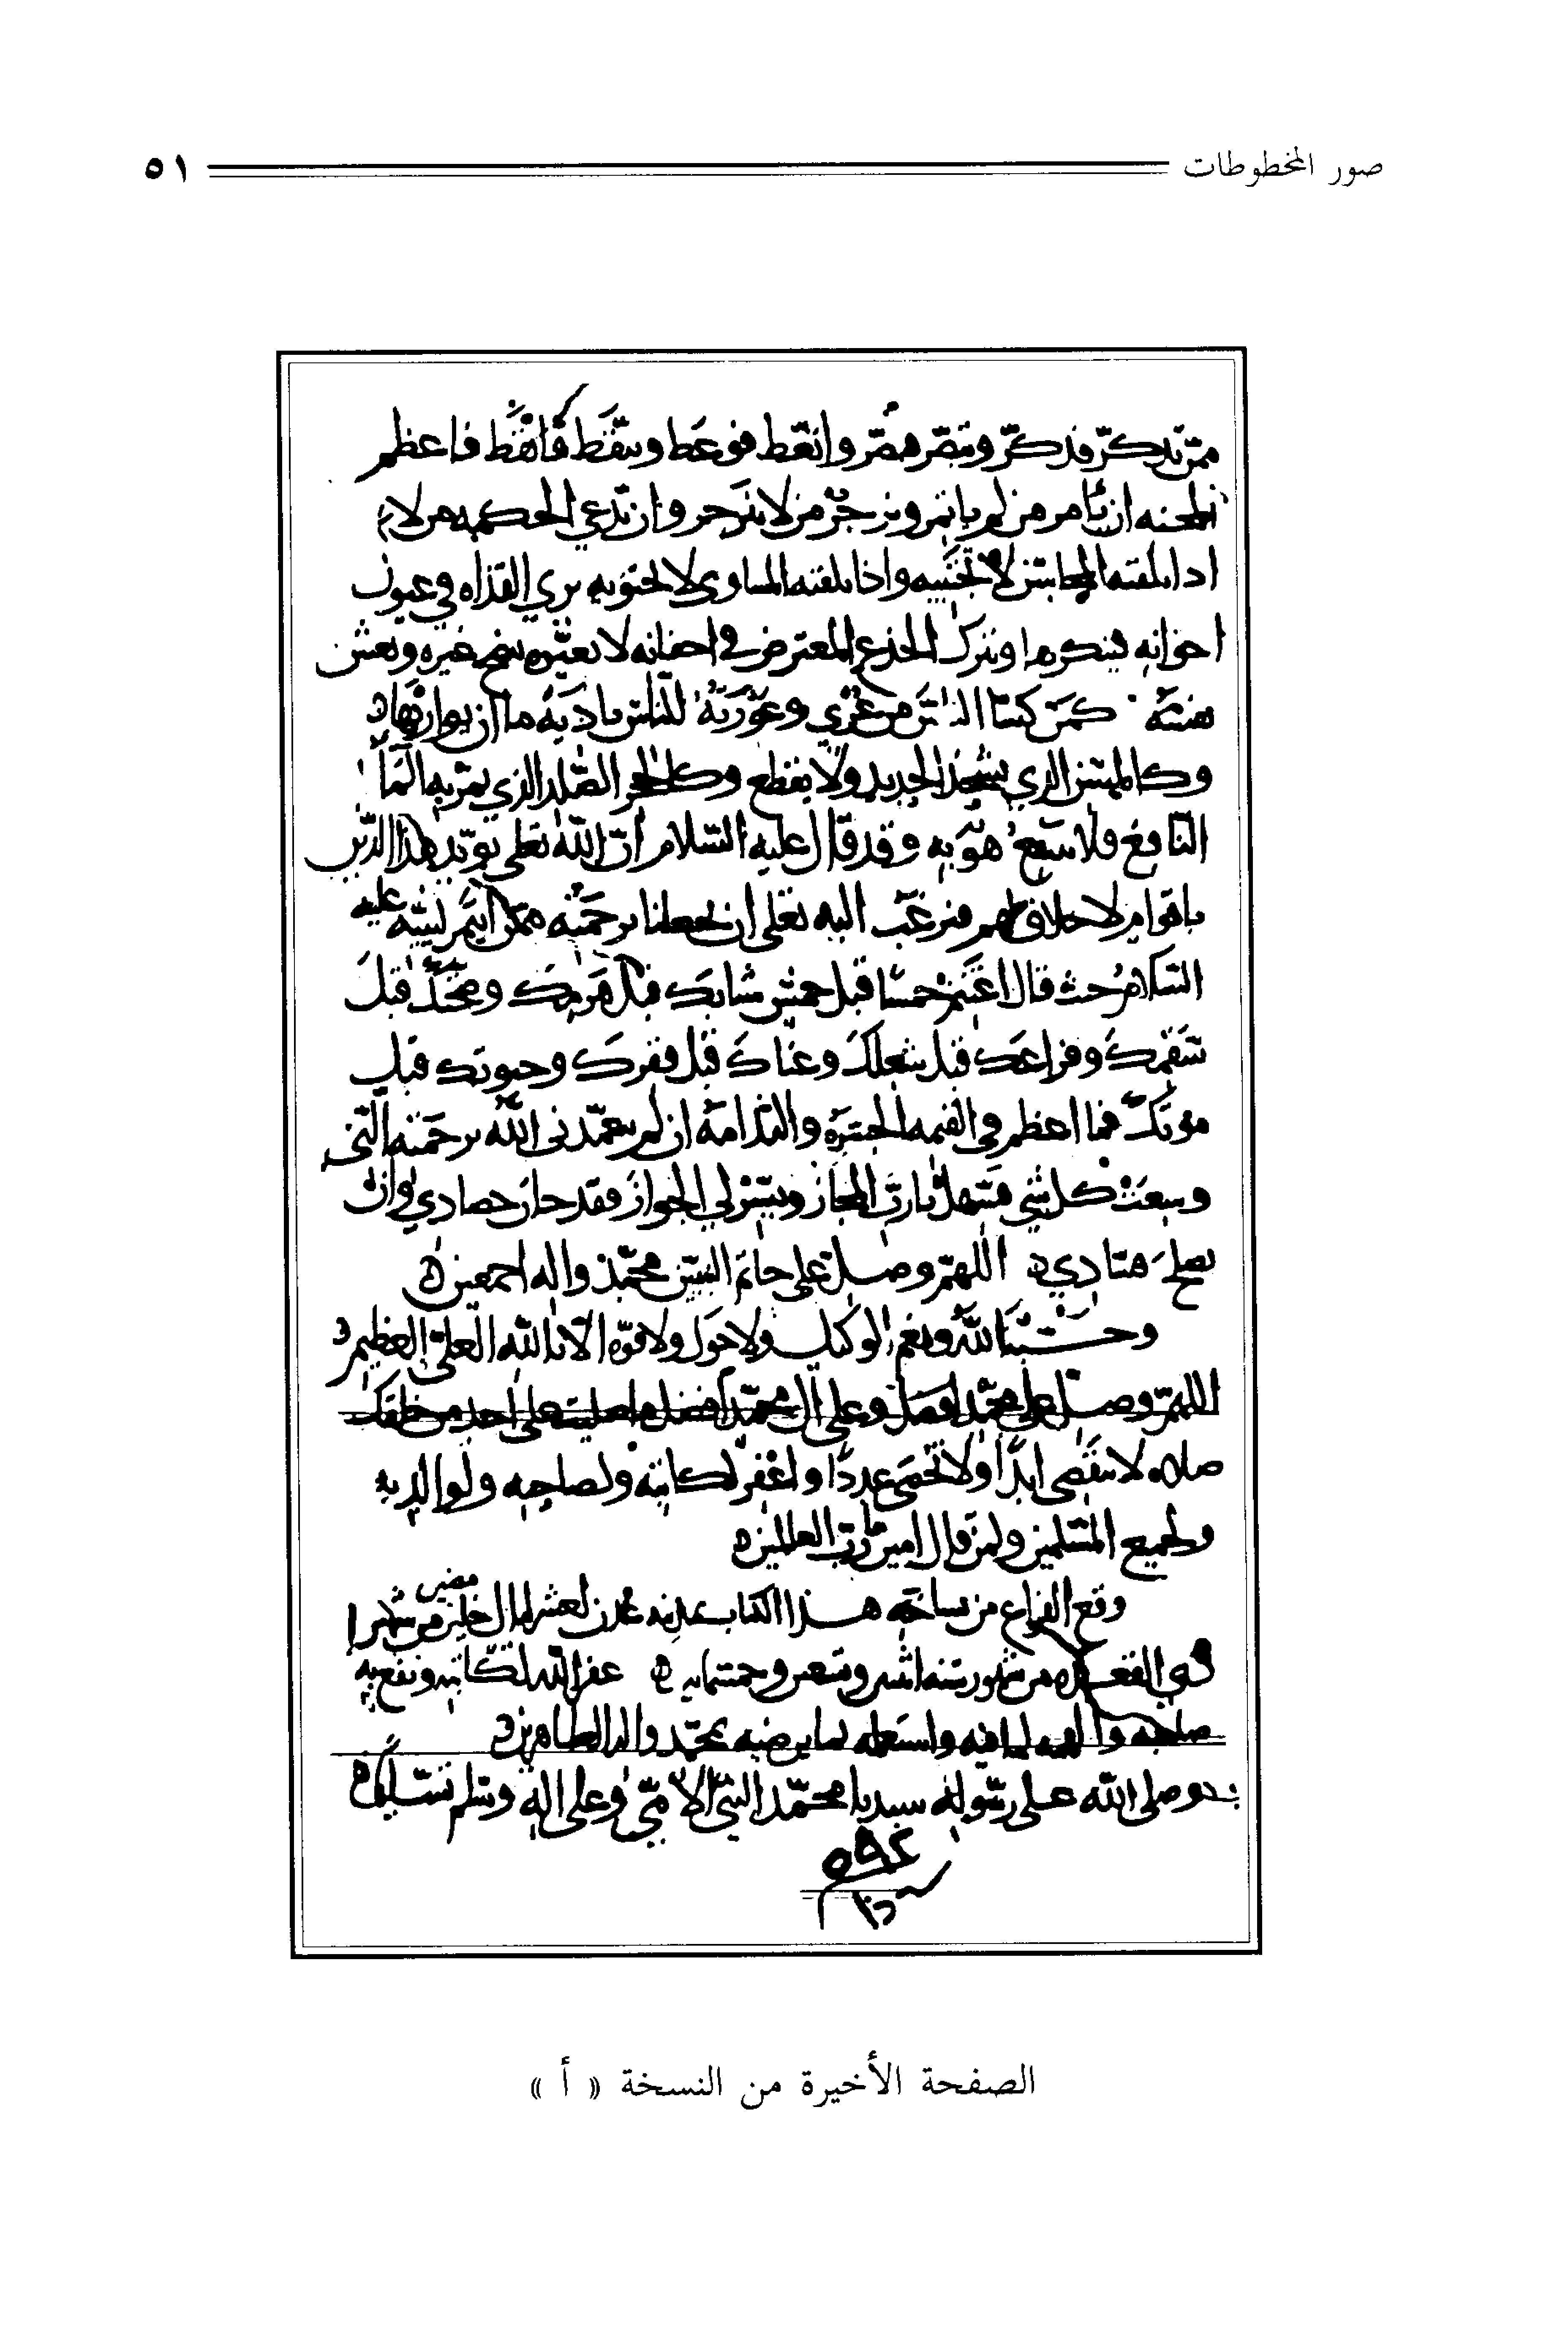 صور المخطوطات ٥١
ممن تذكر فذكر وتبصر فبصر واتعظ فوعظ وتيقظ فايقظ فما اعظم
المحنه ان يامر من لم ياتمر ويزجر من لا ينزجر وان يدعي الحكمه من لا
اذا بلغته المحاسن لا تجتبيه واذا بلغته المساوى لا تحتويه يري القذاه في عيون
اخوانه فينكرها ويترك الجذع المعترض في اجفانه لا يغيره ينصح غيره ويغش
نفسه كمن كسا الناس من عري وعورته للناس باديه ما ان يواريها
وكالمسن الذي يشحذ الحديد ولا يقطع وكالحجر الصلد الذي يمر به الما
النافع ولا ينتفع هو به وقد قال عليه السلام ان الله تعلى يويد هذا الدين
باقوام لا خلاق لهم فنرغب اليه تعلى ان يجعلنا برحمته ممن ايتمر لنبيه عليه
السلام حيث قال اغتنم خمسا قبل خمس شبابك قبل هرمك وصحتك قبل
سقمك وفراغك قبل شغلك وغناك قبل فقرك وحيوتك قبل
موتك فما اعظم في القيمه الحسره والندامه ان لم يتغمدنى الله برحمته التى
وسعت كل شي فسهل يارب المجاز ويسر لي الجواز فقد حان حصادي وان
يصلح فسادي اللهم وصل على خاتم النبيين محمد واله اجمعين
وحسبنا الله ونعم الوكيل ولا حول ولا قوه الا بالله العلى العظيم
اللهم وصل على محمد وعلى ال محمد افضل ما صليت على احد من خلقك
صلاه لا تنقضى ابدا ولا تحصى عددا واغفر لكاتبه ولصاحبه ولوالديه
ولجميع المسلمين ولمن قال امين يارب العالمين
وقع الفراغ من نساخه هذا الكتاب بمدينه عدن لعشر ليال مضين من شهر
ذي القعده من شهور سنه اثنين وتسعين وخمسمايه غفر الله لكاتبه ونفع به
صاحبه والهمه لما فيه واستعمله لما يرضيه بمحمد واله الطاهرين
وصلى الله على رسوله سيدنا محمد النبى الامي وعلى اله وسلم تسليما
الصفحة الأخيرة من النسخة « أ »